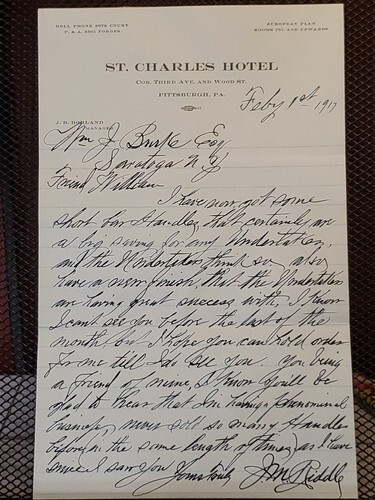 BELL PHONE 8078 COURT
P. & A. 3361 FORBES
EUROPEAN PLAN
ROOMS 75c AND UPWARDS
ST. CHARLES HOTEL
COR. THIRD AVE. AND WOOD ST.
PITTSBURGH, PA.
Feby 1st 1917
J. B. DORLAND
MANAGER
Wm J. Burke Esq
Saratoga N.Y.
Friend William
I have now got some
short bar Handles, that certainly are
a big saving for any Undertaker,
and the Undertakers think so, also
have a new finish that the Undertakers
are having great success with, I know
I cant see you before the last of the
month, but I hope you can hold order
for me till I do see you. You being
a friend of mine, I know you'll be
glad to hear that I'm having a phenominal
business, never sold so many Handles
before (in the same length of time) as I have
since I saw you Yours truly J M Riddle